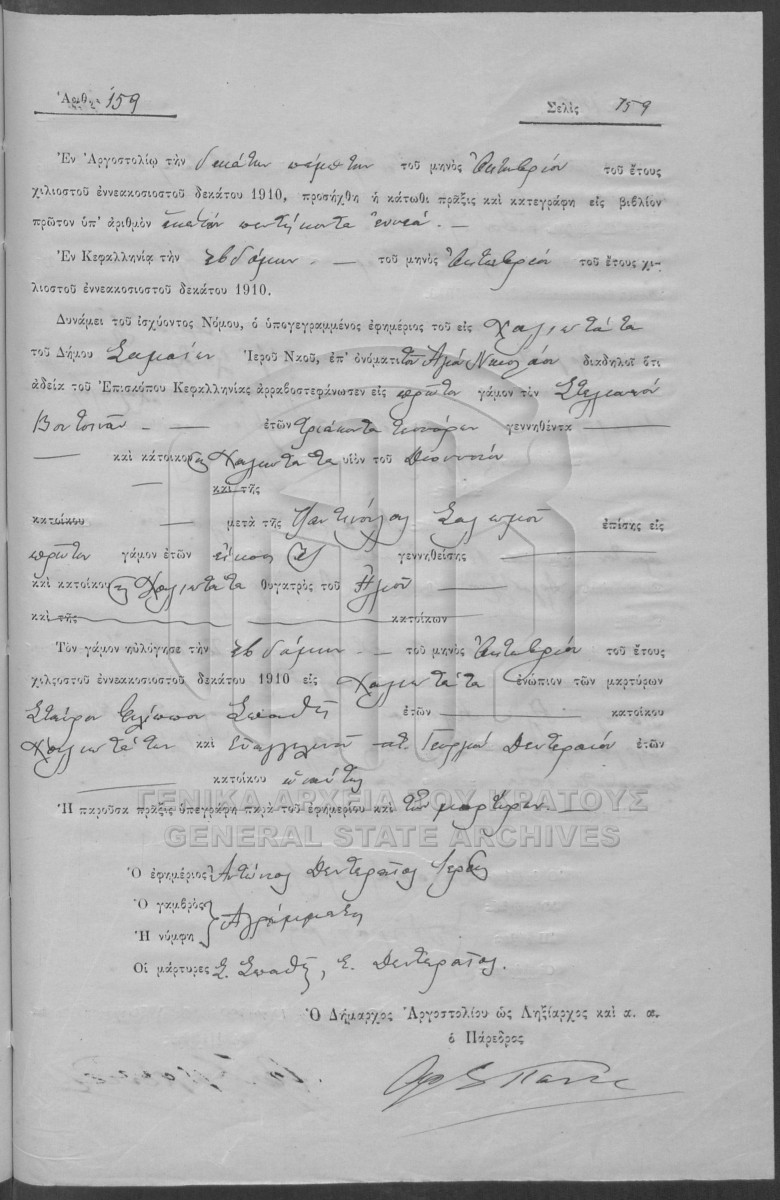 Ἀριθ. 159
Σελὶς 159
Ἐν Ἀργοστολίῳ τὴν δεκάτην πέμπτην τοῦ μηνὸς Ὀκτωβρίου τοῦ ἔτους
χιλιοστοῦ ἐννεακοσιοστοῦ δεκάτου 1910, προσήχθη ἡ κάτωθι πρᾶξις καὶ κατεγράφη εἰς βιβλίον
πρῶτον ὑπ' ἀριθμὸν ἑκατόν πεντήκοντα ἐννεά. —
Ἐν Κεφαλληνίᾳ τὴν ἑβδόμην — τοῦ μηνὸς Ὀκτωβρίου τοῦ ἔτους χι-
λιοστοῦ ἐννεακοσιοστοῦ δεκάτου 1910.
Δυνάμει τοῦ ἰσχύοντος Νόμου, ὁ ὑπογεγραμμένος ἐφημέριος τοῦ εἰς Χαλιωτάτα
τοῦ Δήμου Σαμαίων Ἱεροῦ Ναοῦ, ἐπ' ὀνόματι τοῦ Ἁγίου Νικολάου διαδηλοῖ ὅτι
ἀδείᾳ τοῦ Ἐπισκόπου Κεφαλληνίας ἀρραβοστεφάνωσεν εἰς πρῶτον γάμον τὸν Στυλιανόν
Βουτσινᾶν — ἐτῶν τριάκοντα τεσσάρων γεννηθέντα —
— καὶ κάτοικον εἰς Χαλιωτάτα υἱὸν τοῦ Διονυσίου
— καὶ τῆς
κατοίκου — μετὰ τῆς Σολωμοῦ ἐπίσης εἰς
πρῶτον γάμον ἐτῶν εἴκοσι ἕξ γεννηθείσης —
καὶ κατοίκου εἰς Χαλιωτάτα θυγατρὸς τοῦ
καὶ τῆς — κατοίκων
Τὸν γάμον ηὐλόγησε τὴν ἑβδόμην — τοῦ μηνὸς Ὀκτωβρίου τοῦ ἔτους
χιλιοστοῦ ἐννεακοσιοστοῦ δεκάτου 1910 εἰς Χαλιωτάτα ἐνώπιον τῶν μαρτύρων
Σταύρου Φιλίππου Σπαθῆ ἐτῶν — κατοίκου
Χαλιωτάτων καὶ Εὐαγγελινοῦ Γεωργίου Δευτεραίου ἐτῶν
— κατοίκου ὡσαύτως
Ἡ παροῦσα πρᾶξις ὑπεγράφη παρὰ τοῦ ἐφημερίου καὶ τῶν μαρτύρων. —
ΓΕΝΙΚΑ ΑΡΧΕΙΑ ΤΟΥ ΚΡΑΤΟΥΣ
GENERAL STATE ARCHIVES
Ὁ ἐφημέριος Ἀντώνιος Δευτεραῖος Ἱερεύς
Ὁ γαμβρὸς
Ἀγράμματοι
Ἡ νύμφη
Οἱ μάρτυρες Σ. Σπαθῆς, Ε. Δευτεραῖος.
Ὁ Δήμαρχος Ἀργοστολίου ὡς Ληξίαρχος καὶ α. α.
ὁ Πάρεδρος